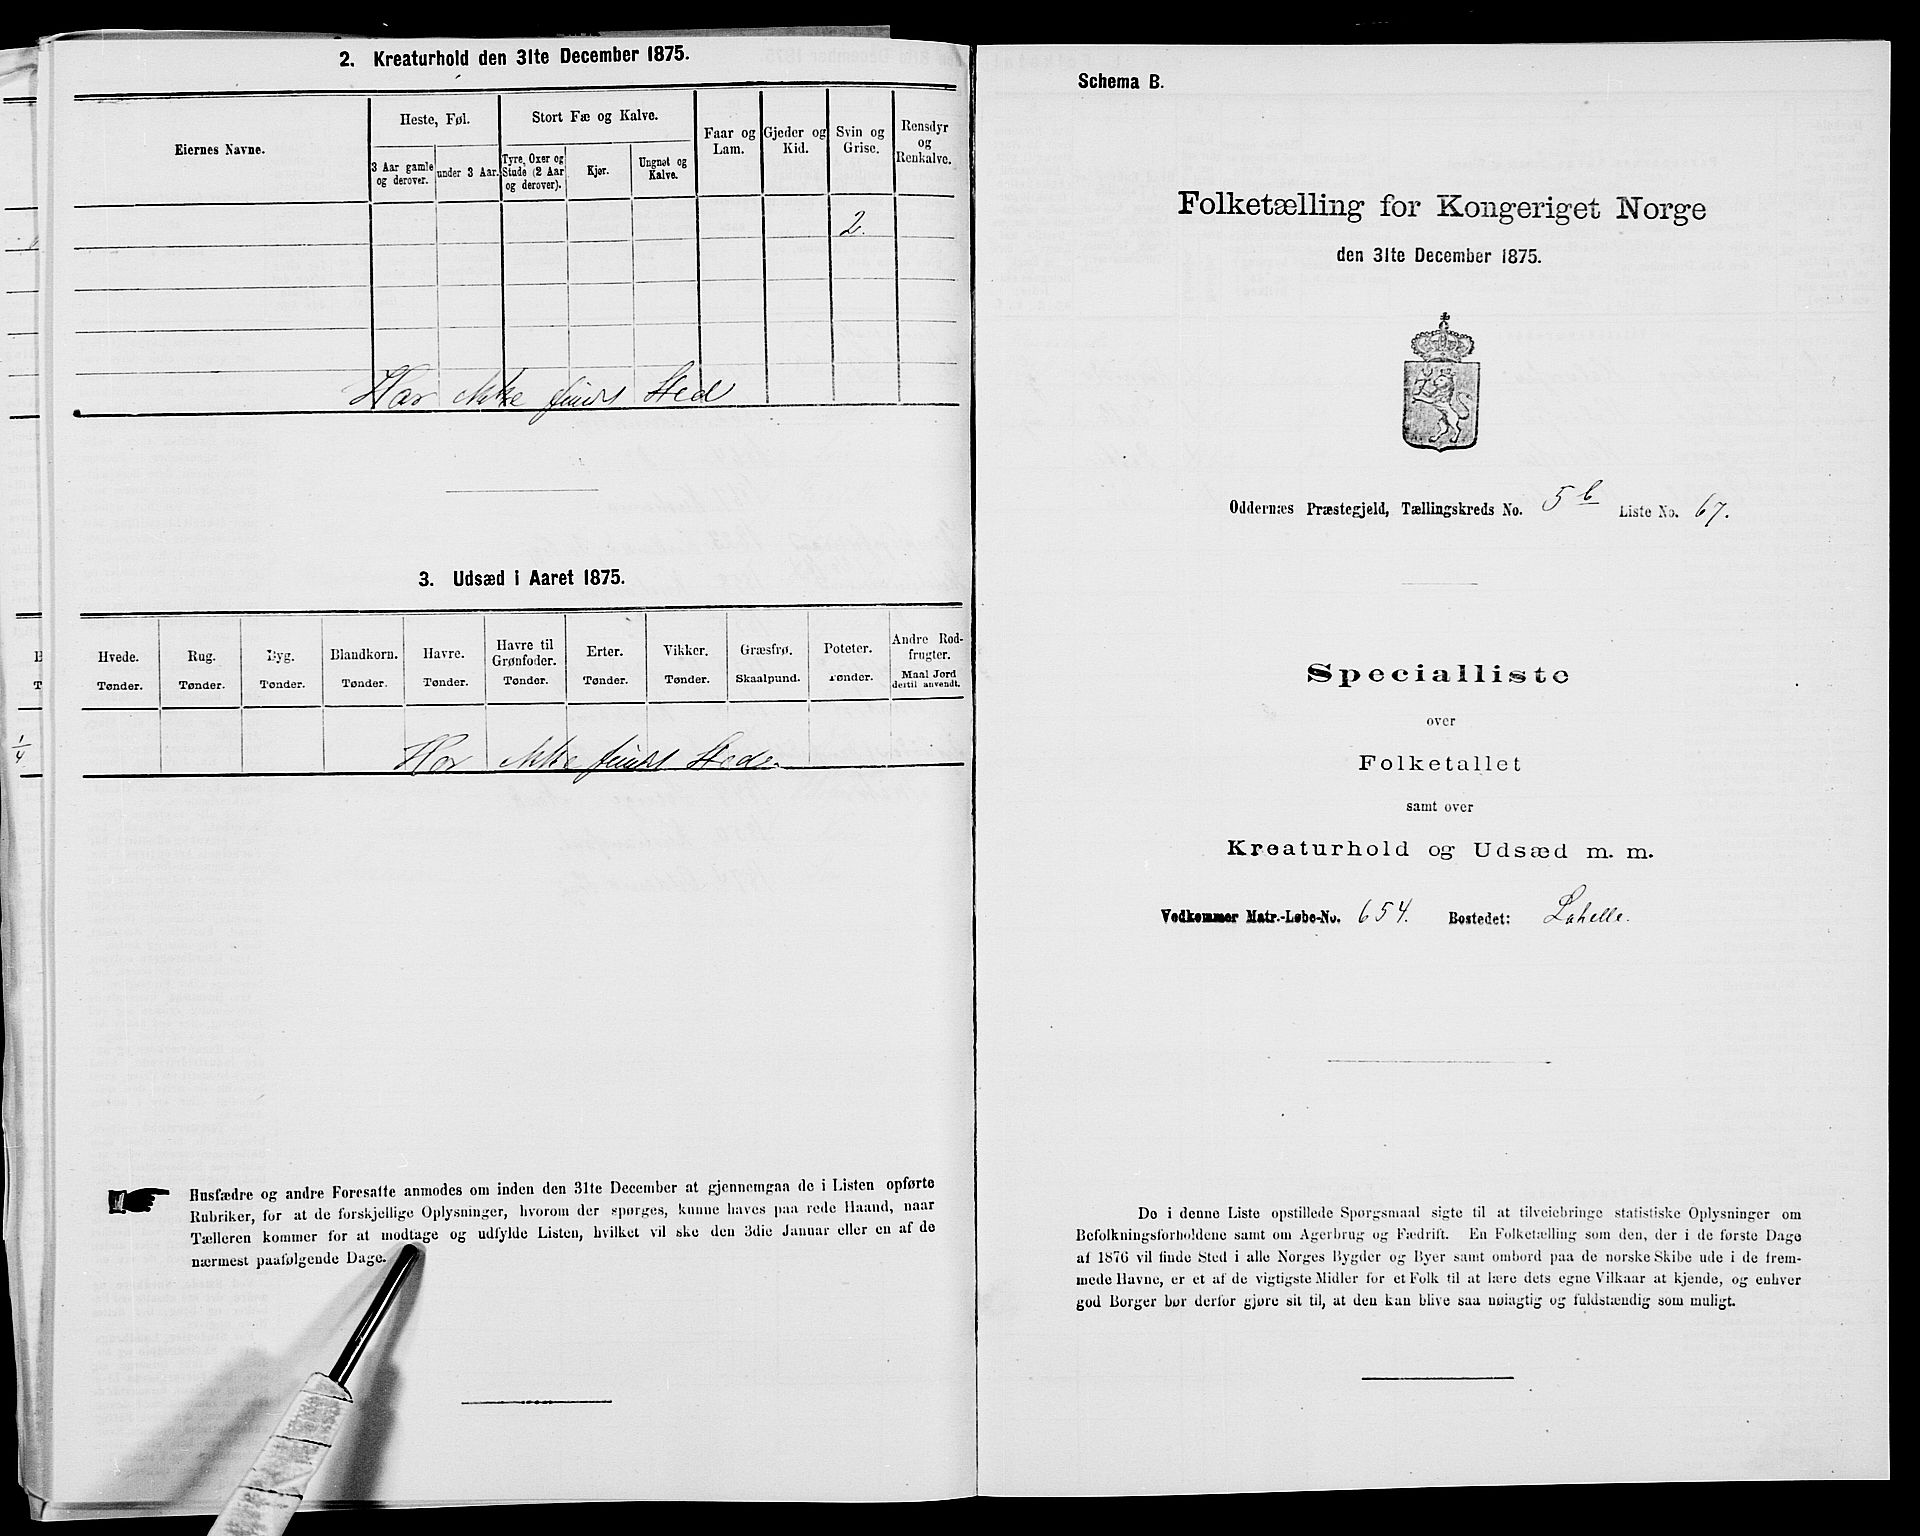 2. Kreaturhold den 31te December 1875.
Eiernes Navne.
Heste, Føl.
3 Aar gamle og derover.
under 3 Aar.
Stort Fæ og Kalve.
Tyre, Oxer og Stude (2 Aar og derover).
Kjør.
Ungnøt og Kalve.
Faar og Lam.
Gjeder og Kid.
Svin og Grise.
Rensdyr og Renkalve.
2.
Har Ikke fundt Sted
3. Udsæd i Aaret 1875.
Hvede. Tønder.
Rug. Tønder.
Byg. Tønder.
Blandkorn. Tønder.
Havre. Tønder.
Havre til Grønfoder. Tønder.
Erter. Tønder.
Vikker. Tønder.
Græsfrø. Skaalpund.
Poteter. Tønder.
Andre Rodfrugter. Maal Jord dertil anvendt.
1/4
Har Ikke fundt Sted.
Husfædre og andre Foresatte anmodes om inden den 31te December at gjennemgaa de i Listen opførte
Rubriker, for at de forskjellige Oplysninger, hvorom der spørges, kunne haves paa rede Haand, naar
Tælleren kommer for at modtage og udfylde Listen, hvilket vil ske den 3die Januar eller en af de
nærmest paafølgende Dage.
Schema B.
Folketælling for Kongeriget Norge
den 31te December 1875.
Oddernæs Præstegjeld, Tællingskreds No. 5 b Liste No. 67.
Specialliste
over
Folketallet
samt over
Kreaturhold og Udsæd m. m.
Vedkommer Matr.-Løbe-No. 654. Bostedet: Lahelle.
De i denne Liste opstillede Spørgsmaal sigte til at tilveiebringe statistiske Oplysninger om
Befolkningsforholdene samt om Agerbrug og Fædrift. En Folketælling som den, der i de første Dage
af 1876 vil finde Sted i alle Norges Bygder og Byer samt ombord paa de norske Skibe ude i de frem-
mede Havne, er et af de vigtigste Midler for et Folk til at lære dets egne Vilkaar at kjende, og enhver
god Borger bør derfor gjøre sit til, at den kan blive saa nøiagtig og fuldstændig som muligt.